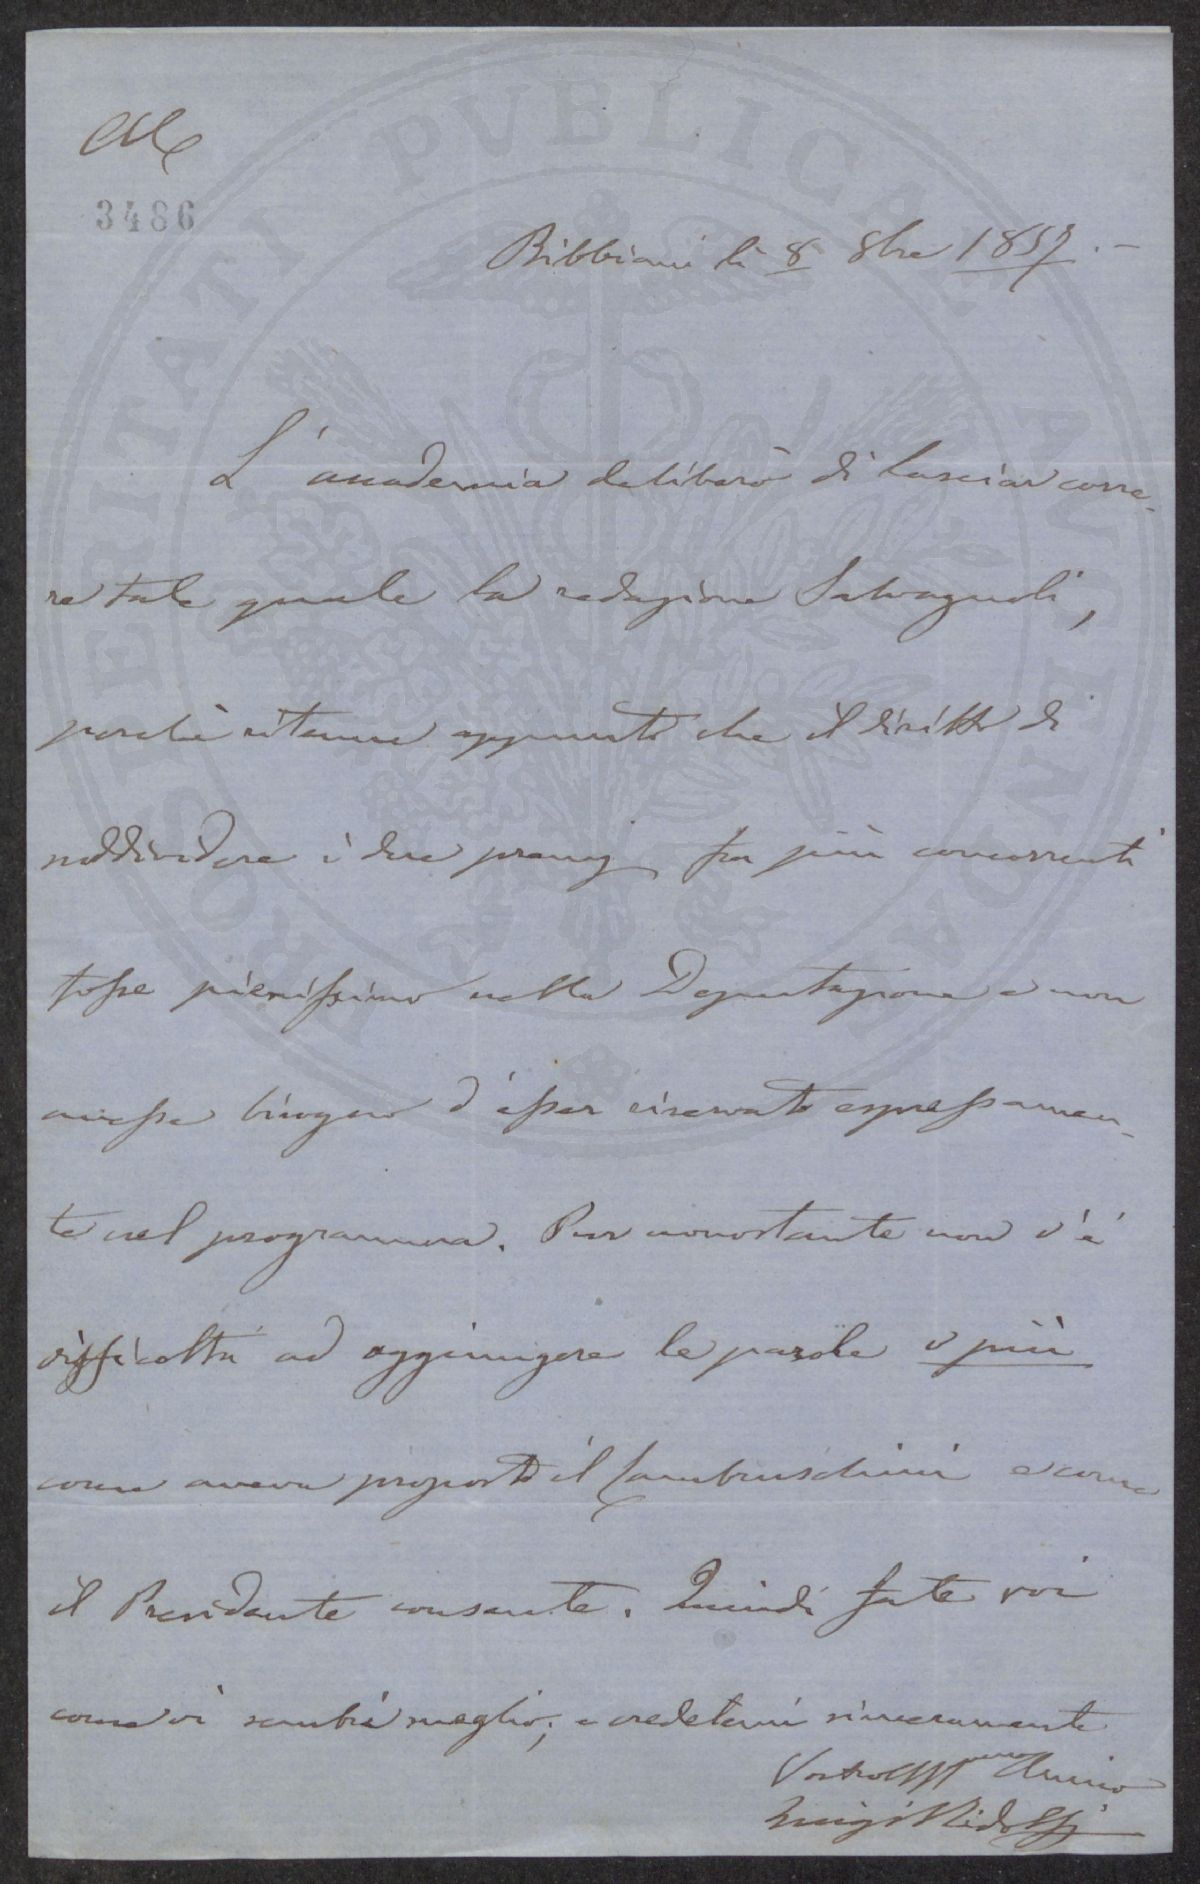 3486
Bibbiani li 8 8bre 1857.
L'accademia deliberò di lasciar corre-
re tale quale la redazione Salvagnoli,
perchè ritenne appunto che il diritto di
suddividere i due premj fra più concorrenti
fosse pienissimo nella Deputazione e non
avesse bisogno d'esser riservato espressamen-
te nel programma. Pur nonostante non v'è
difficoltà ad aggiungere le parole o più
come aveva proposto il Lambruschini e come
il Presidente consente. Quindi fate voi
come vi sembra meglio; e credetemi sinceramente
Vostro Amico
Luigi Ridolfi
PROSPERITATI PUBLICAE AUGENDAE